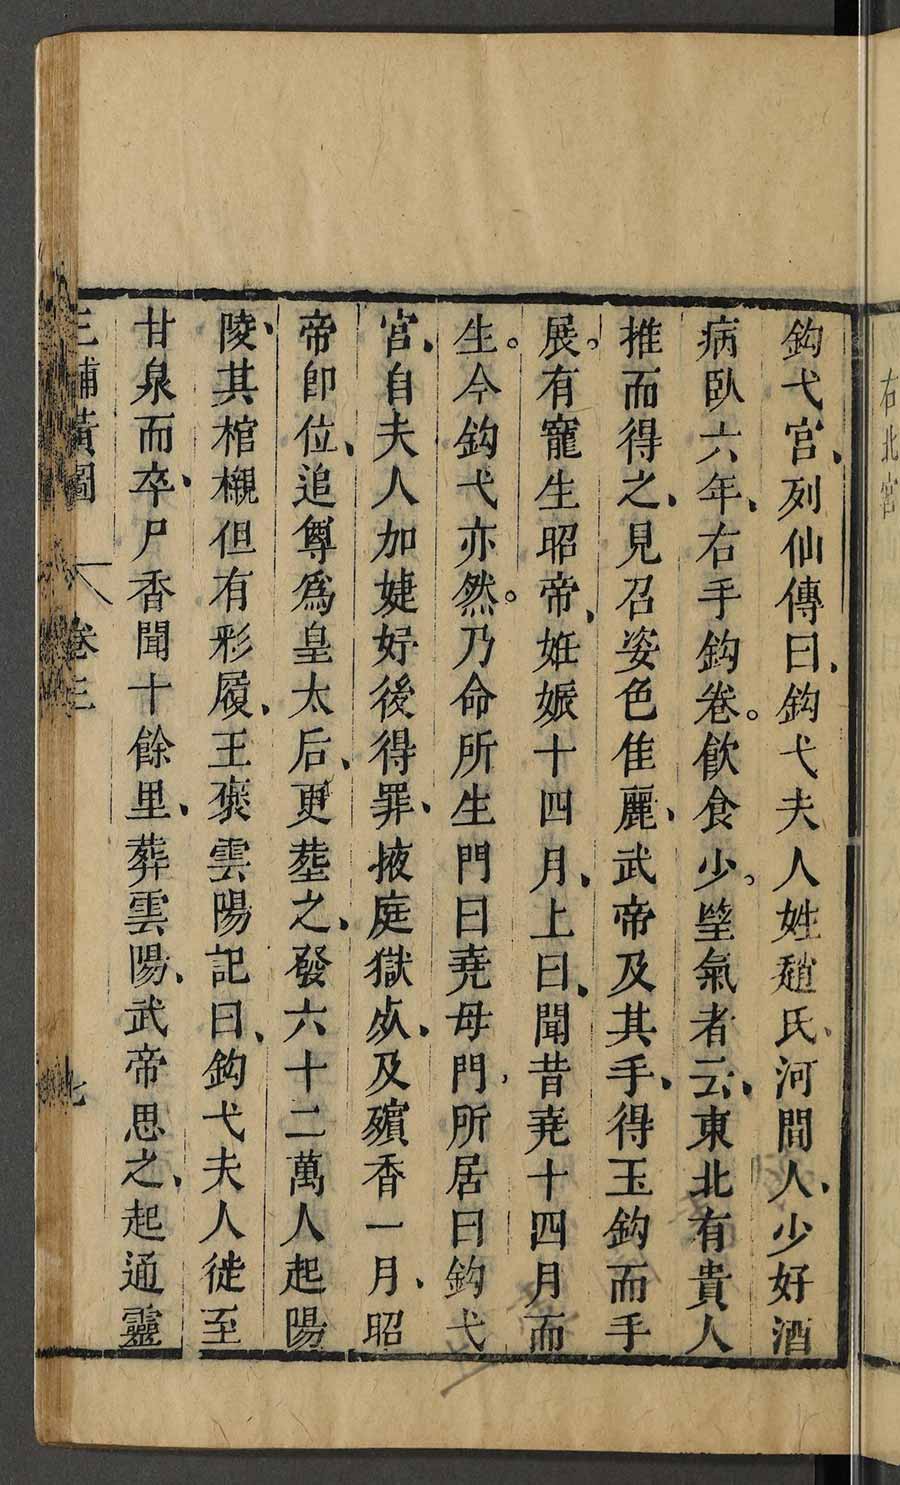 右北宮
鈎弋宮、列仙傳曰、鈎弋夫人姓趙氏、河間人、少好酒
病臥六年、右手鈎卷。飲食少。朢氣者云、東北有貴人
推而得之、見召姿色佳麗、武帝及其手、得玉鈎而手
展。有寵生昭帝、姙娠十四月、上曰、聞昔堯十四月而
生。今鈎弋亦然。乃命所生門曰堯母門、所居曰鈎弋
宮、自夫人加婕妤後得罪、掖庭獄㱔、及殯香一月、昭
帝即位、追尊爲皇太后、更塟之、發六十二萬人起陽
陵、其棺櫬但有彩履、王褒雲陽記曰、鈎弋夫人徙至
甘泉而卒、尸香聞十餘里、葬雲陽、武帝思之、起通靈
三輔黃圖 卷三 七